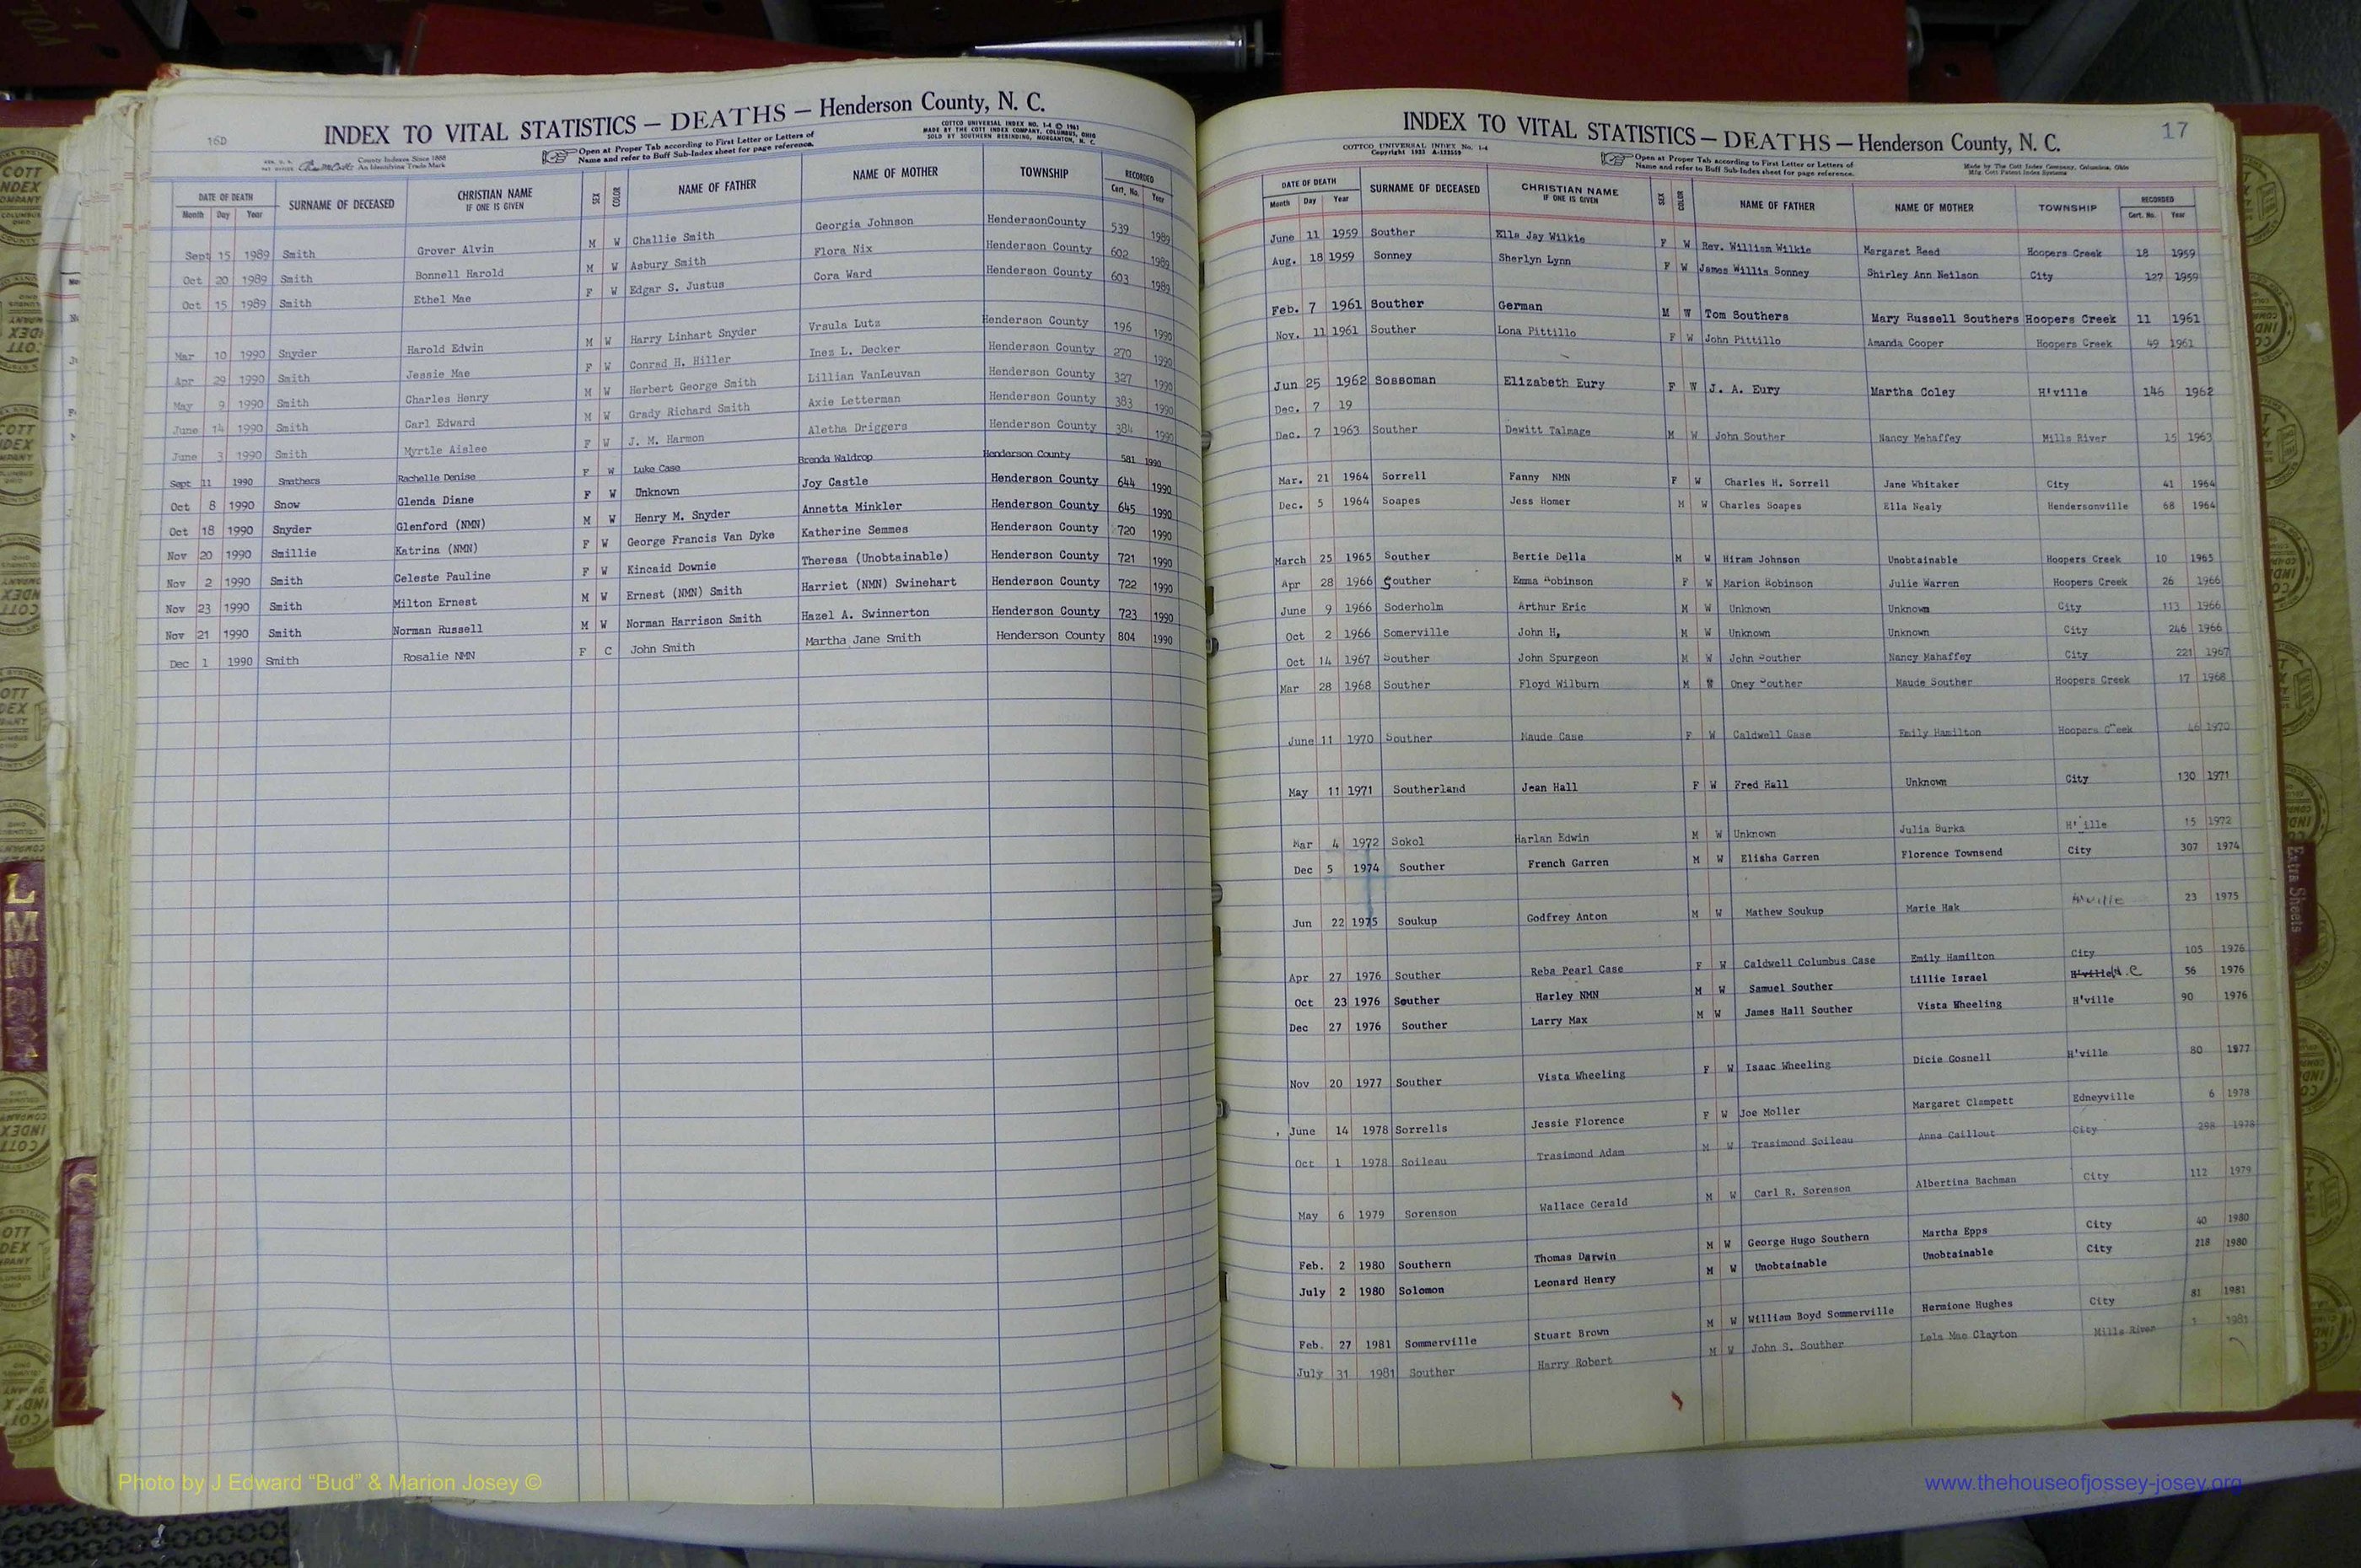 16D
INDEX TO VITAL STATISTICS — DEATHS — Henderson County, N. C.
COTTCO UNIVERSAL INDEX NO. 1-4 © 1961
MADE BY THE COTT INDEX COMPANY, COLUMBUS, OHIO
SOLD BY SOUTHERN REBINDING, MORGANTON, N. C.
County Indexes Since 1888
An Identifying Trade Mark
Open at Proper Tab according to First Letter or Letters of
Name and refer to Buff Sub-Index sheet for page reference.
DATE OF DEATH SURNAME OF DECEASED CHRISTIAN NAME IF ONE IS GIVEN SEX COLOR NAME OF FATHER NAME OF MOTHER TOWNSHIP RECORDED
Month Day Year Cert. No. Year
Sept 15 1989 Smith Grover Alvin M W Challie Smith Georgia Johnson HendersonCounty 539 1989
Oct 20 1989 Smith Bonnell Harold M W Asbury Smith Flora Nix Henderson County 602 1989
Oct 15 1989 Smith Ethel Mae F W Edgar S. Justus Cora Ward Henderson County 603 1989
Mar 10 1990 Snyder Harold Edwin M W Harry Linhart Snyder Vrsula Lutz Henderson County 196 1990
Apr 29 1990 Smith Jessie Mae F W Conrad H. Hiller Inez L. Decker Henderson County 270 1990
May 9 1990 Smith Charles Henry M W Herbert George Smith Lillian VanLeuvan Henderson County 327 1990
June 14 1990 Smith Carl Edward M W Grady Richard Smith Axie Letterman Henderson County 383 1990
June 3 1990 Smith Myrtle Aislee F W J. M. Harmon Aletha Driggers Henderson County 384 1990
Sept 11 1990 Smathers Rachelle Denise F W Luke Case Brenda Waldrop Henderson County 581 1990
Oct 8 1990 Snow Glenda Diane F W Unknown Joy Castle Henderson County 644 1990
Oct 18 1990 Snyder Glenford (NMN) M W Henry M. Snyder Annetta Minkler Henderson County 645 1990
Nov 20 1990 Smillie Katrina (NMN) F W George Francis Van Dyke Katherine Semmes Henderson County 720 1990
Nov 2 1990 Smith Celeste Pauline F W Kincaid Downie Theresa (Unobtainable) Henderson County 721 1990
Nov 23 1990 Smith Milton Ernest M W Ernest (NMN) Smith Harriet (NMN) Swinehart Henderson County 722 1990
Nov 21 1990 Smith Norman Russell M W Norman Harrison Smith Hazel A. Swinnerton Henderson County 723 1990
Dec 1 1990 Smith Rosalie NMN F C John Smith Martha Jane Smith Henderson County 804 1990
17
INDEX TO VITAL STATISTICS — DEATHS — Henderson County, N. C.
COTTCO UNIVERSAL INDEX No. 1-4
Open at Proper Tab according to First Letter or Letters of
Name and refer to Buff Sub-Index sheet for page reference.
Made by The Cott Index Company, Columbus, Ohio
Mfg. Cott Patent Index Systems
DATE OF DEATH SURNAME OF DECEASED CHRISTIAN NAME IF ONE IS GIVEN SEX COLOR NAME OF FATHER NAME OF MOTHER TOWNSHIP RECORDED
Month Day Year Cert. No. Year
June 11 1959 Souther Ella Jay Wilkie F W Rev. William Wilkie Margaret Reed Hoopers Creek 18 1959
Aug. 18 1959 Sonney Sherlyn Lynn F W James Willis Sonney Shirley Ann Neilson City 127 1959
Feb. 7 1961 Souther German M W Tom Southers Mary Russell Southers Hoopers Creek 11 1961
Nov. 11 1961 Souther Lona Pittillo F W John Pittillo Amanda Cooper Hoopers Creek 49 1961
Jun 25 1962 Sossoman Elizabeth Eury F W J. A. Eury Martha Coley H'ville 146 1962
Dec. 7 19
Dec. 7 1963 Souther Dewitt Talmage M W John Souther Nancy Mehaffey Mills River 15 1963
Mar. 21 1964 Sorrell Fanny NMN F W Charles H. Sorrell Jane Whitaker City 41 1964
Dec. 5 1964 Soapes Jess Homer M W Charles Soapes Ella Nealy Hendersonville 68 1964
March 25 1965 Souther Bertie Della M W Hiram Johnson Unobtainable Hoopers Creek 10 1965
Apr 28 1966 Souther Emma Robinson F W Marion Robinson Julie Warren Hoopers Creek 26 1966
June 9 1966 Soderholm Arthur Eric M W Unknown Unknown City 113 1966
Oct 2 1966 Somerville John H, M W Unknown Unknown City 246 1966
Oct 14 1967 Souther John Spurgeon M W John Souther Nancy Mahaffey City 221 1967
Mar 28 1968 Souther Floyd Wilburn M W Oney Souther Maude Souther Hoopers Creek 17 1968
June 11 1970 Souther Maude Case F W Caldwell Case Emily Hamilton Hoopers Creek 46 1970
May 11 1971 Southerland Jean Hall F W Fred Hall Unknown City 130 1971
Mar 4 1972 Sokol Harlan Edwin M W Unknown Julia Burka H'ville 15 1972
Dec 5 1974 Souther French Garren M W Elisha Garren Florence Townsend City 307 1974
Jun 22 1975 Soukup Godfrey Anton M W Mathew Soukup Marie Hak H'ville 23 1975
Apr 27 1976 Souther Reba Pearl Case F W Caldwell Columbus Case Emily Hamilton City 105 1976
Oct 23 1976 Souther Harley NMN M W Samuel Souther Lillie Israel H'ville H.C 56 1976
Dec 27 1976 Souther Larry Max M W James Hall Souther Vista Wheeling H'ville 90 1976
Nov 20 1977 Souther Vista Wheeling F W Isaac Wheeling Dicie Gosnell H'ville 80 1977
June 14 1978 Sorrells Jessie Florence F W Joe Moller Margaret Clampett Edneyville 6 1978
Oct 1 1978 Soileau Trasimond Adam M W Trasimond Soileau Anna Caillout City 298 1978
May 6 1979 Sorenson Wallace Gerald M W Carl R. Sorenson Albertina Bachman City 112 1979
Feb. 2 1980 Southern Thomas Darwin M W George Hugo Southern Martha Epps City 40 1980
July 2 1980 Solomon Leonard Henry M W Unobtainable Unobtainable City 218 1980
Feb. 27 1981 Sommerville Stuart Brown M W William Boyd Sommerville Hermione Hughes City 81 1981
July 31 1981 Souther Harry Robert M W John S. Souther Lela Mae Clayton Mills River 1 1981
L
M
Extra Sheets
Photo by J Edward “Bud” & Marion Josey ©
www.thehouseofjossey-josey.org